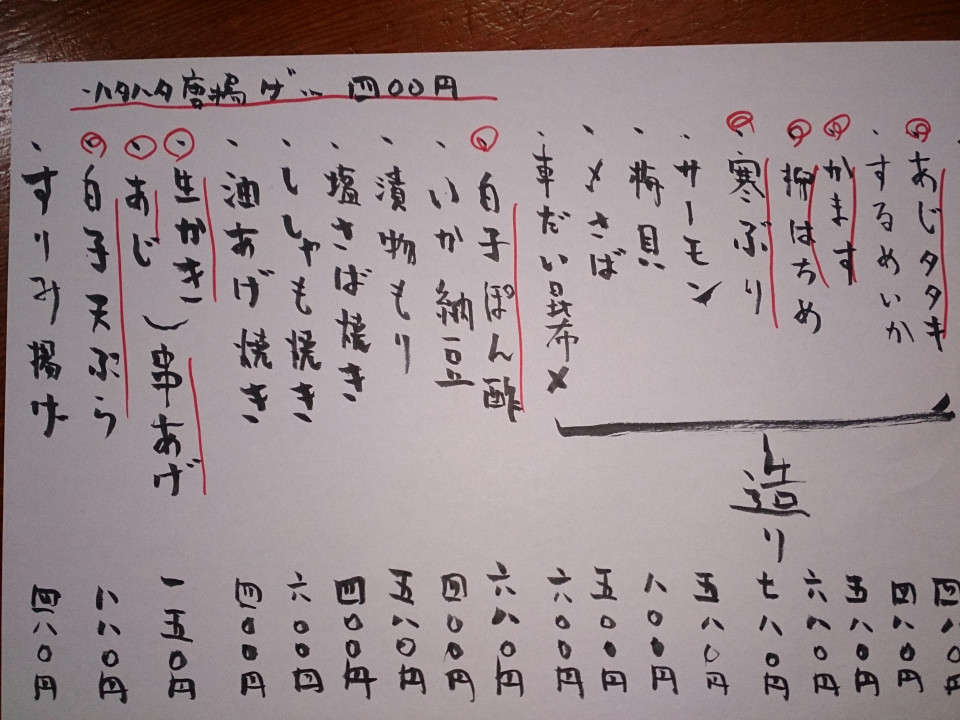 ハタハタ唐揚げ… 四〇〇円
あじタタキ 四八〇円
するめいか 四八〇円
かます 五八〇円
柳ばちめ 六八〇円
寒ぶり 七八〇円
サーモン 五八〇円
梅貝 八〇〇円
〆さば 五〇〇円
車だい昆布〆 六〇〇円
造り
白子ぽん酢 六八〇円
いか納豆 四〇〇円
漬物もり 五八〇円
塩さば焼き 四〇〇円
ししゃも焼き 六〇〇円
油あげ焼き 四〇〇円
生かき
あじ
串あげ 一五〇円
白子天ぷら 八八〇円
すりみ揚げ 四八〇円